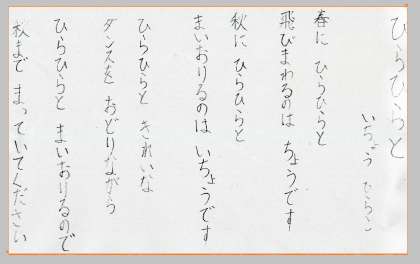 ひらひらと
いちょう ひらこ
春に ひらひらと
飛びまわるのは ちょうです
秋に ひらひらと
まいおりるのは いちょうです
ひらひらと きれいな
ダンスを おどりながら
ひらひらと まいおりるので
秋まで まっていてください